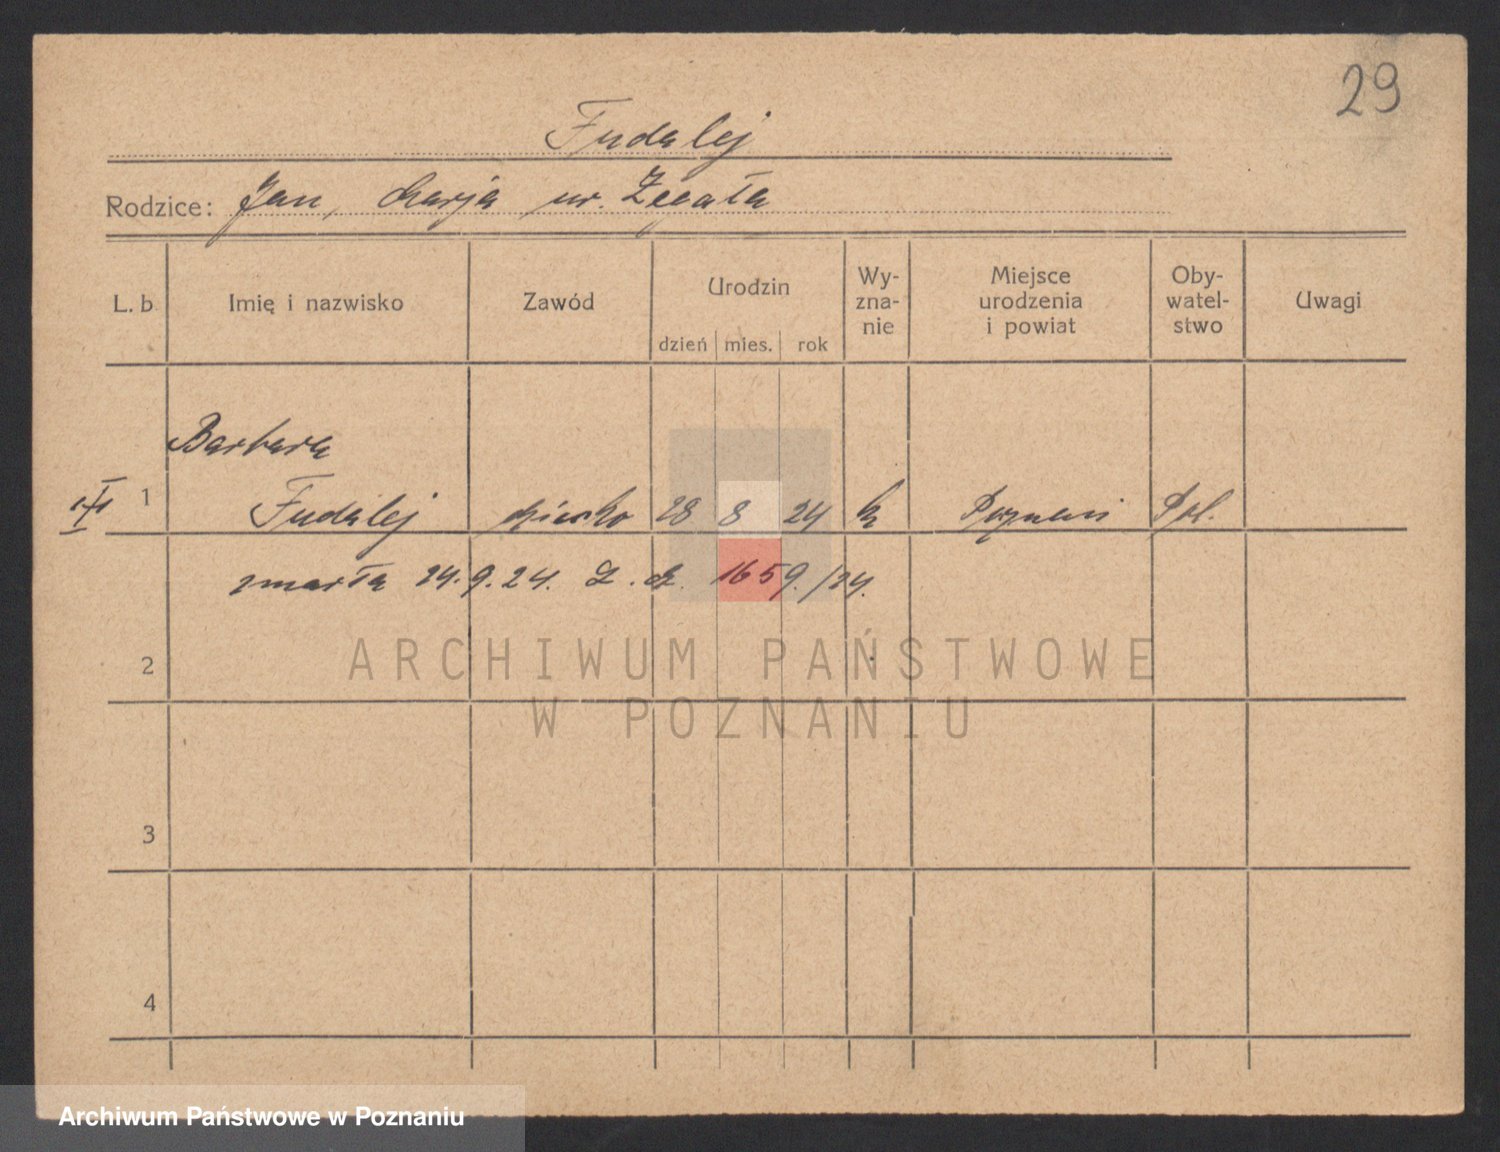 29
Fudalej
Rodzice: Jan, Marja ur. Zegała
L. b Imię i nazwisko Zawód Urodzin dzień mies. rok Wy-zna-nie Miejsce urodzenia i powiat Oby-watel-stwo Uwagi
Barbara
1 Fudalej dziecko 28 8 24 k Poznań Pol.
zmarła 24.9.24. L. dz. 1659./24.
2
3
4
ARCHIWUM PAŃSTWOWE
W POZNANIU
Archiwum Państwowe w Poznaniu